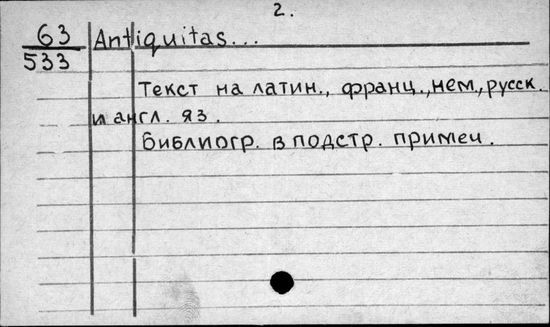 2.
63 Antiquitas...
533
Текст на латин., франц., нем., русск.
и англ. яз.
Библиогр. в подстр. примеч.